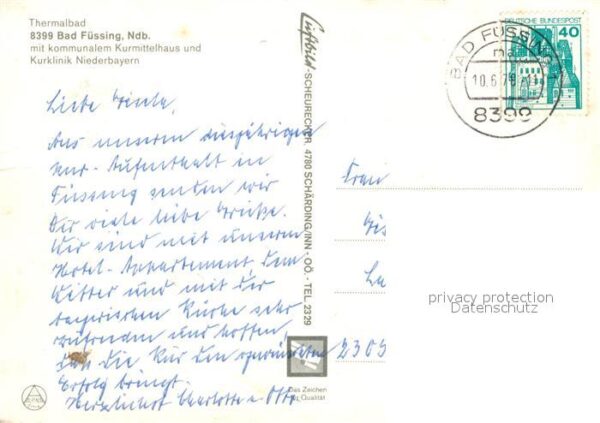 Thermalbad
8399 Bad Füssing, Ndb.
mit kommunalem Kurmittelhaus und
Kurklinik Niederbayern
Liebe Gisela,
Aus unserem diesjährigen
Kur-Aufenthalt in
Füssing senden wir
Dir viele liebe Grüße.
Wir sind mit unserem
Hotel-Appartement, dem
Wetter und mit der
bayrischen Küche sehr
zufrieden und hoffen,
daß die Kur den gewünschten
Erfolg bringt.
Herzlichst Charlotte u. Otto
Luftbild-SCHEURECKER, 4780 SCHÄRDING/INN - OÖ. - TEL. 2329
Das Zeichen
für Qualität
DEUTSCHE BUNDESPOST
40
BAD FÜSSING 1
10.6.78
8399
Frau
Gis
2305
privacy protection
Datenschutz